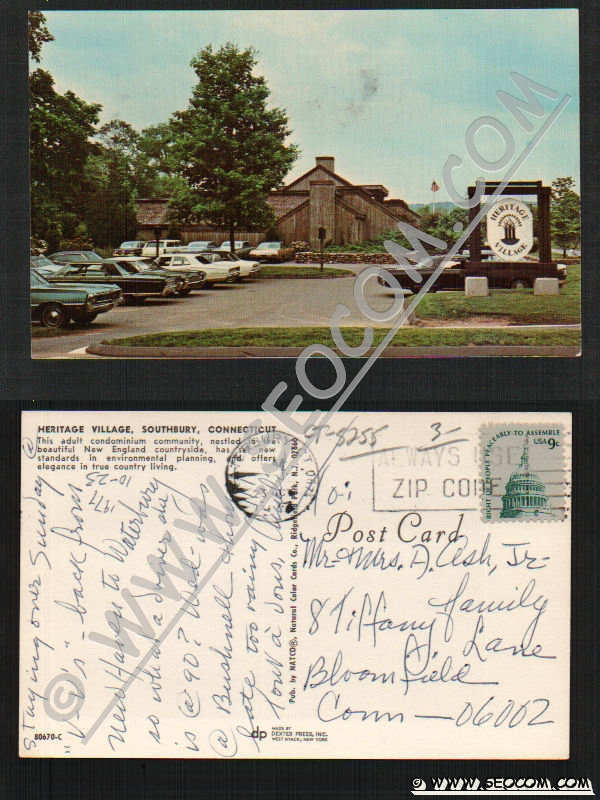 HERITAGE
VILLAGE
© WWW.SEOCOM.COM
HERITAGE VILLAGE, SOUTHBURY, CONNECTICUT
This adult condominium community, nestled in the
beautiful New England countryside, has set new
standards in environmental planning, and offers
elegance in true country living.
Staying over Sunday @
V. V.'s - back from
1977
10-23
New Haven to Waterbury
so what a
is @ 90? Well - was
@ Bushnell
late too rainy
Tout à vous,
80670-C
Pub. by NATCO®, Natural Color Cards Co., Ridgefield Park, N.J. 07660
dp
MADE BY
DEXTER PRESS, INC.
WEST NYACK, NEW YORK
CT-5255
3-
ALWAYS USE
ZIP CODE
RIGHT OF PEOPLE PEACEABLY TO ASSEMBLE
USA 9c
Post Card
Mr-Mrs. A. Ash, Jr-
& family
8 Tiffany Lane
Bloomfield
Conn - 06002
© WWW.SEOCOM.COM
© WWW.SEOCOM.COM